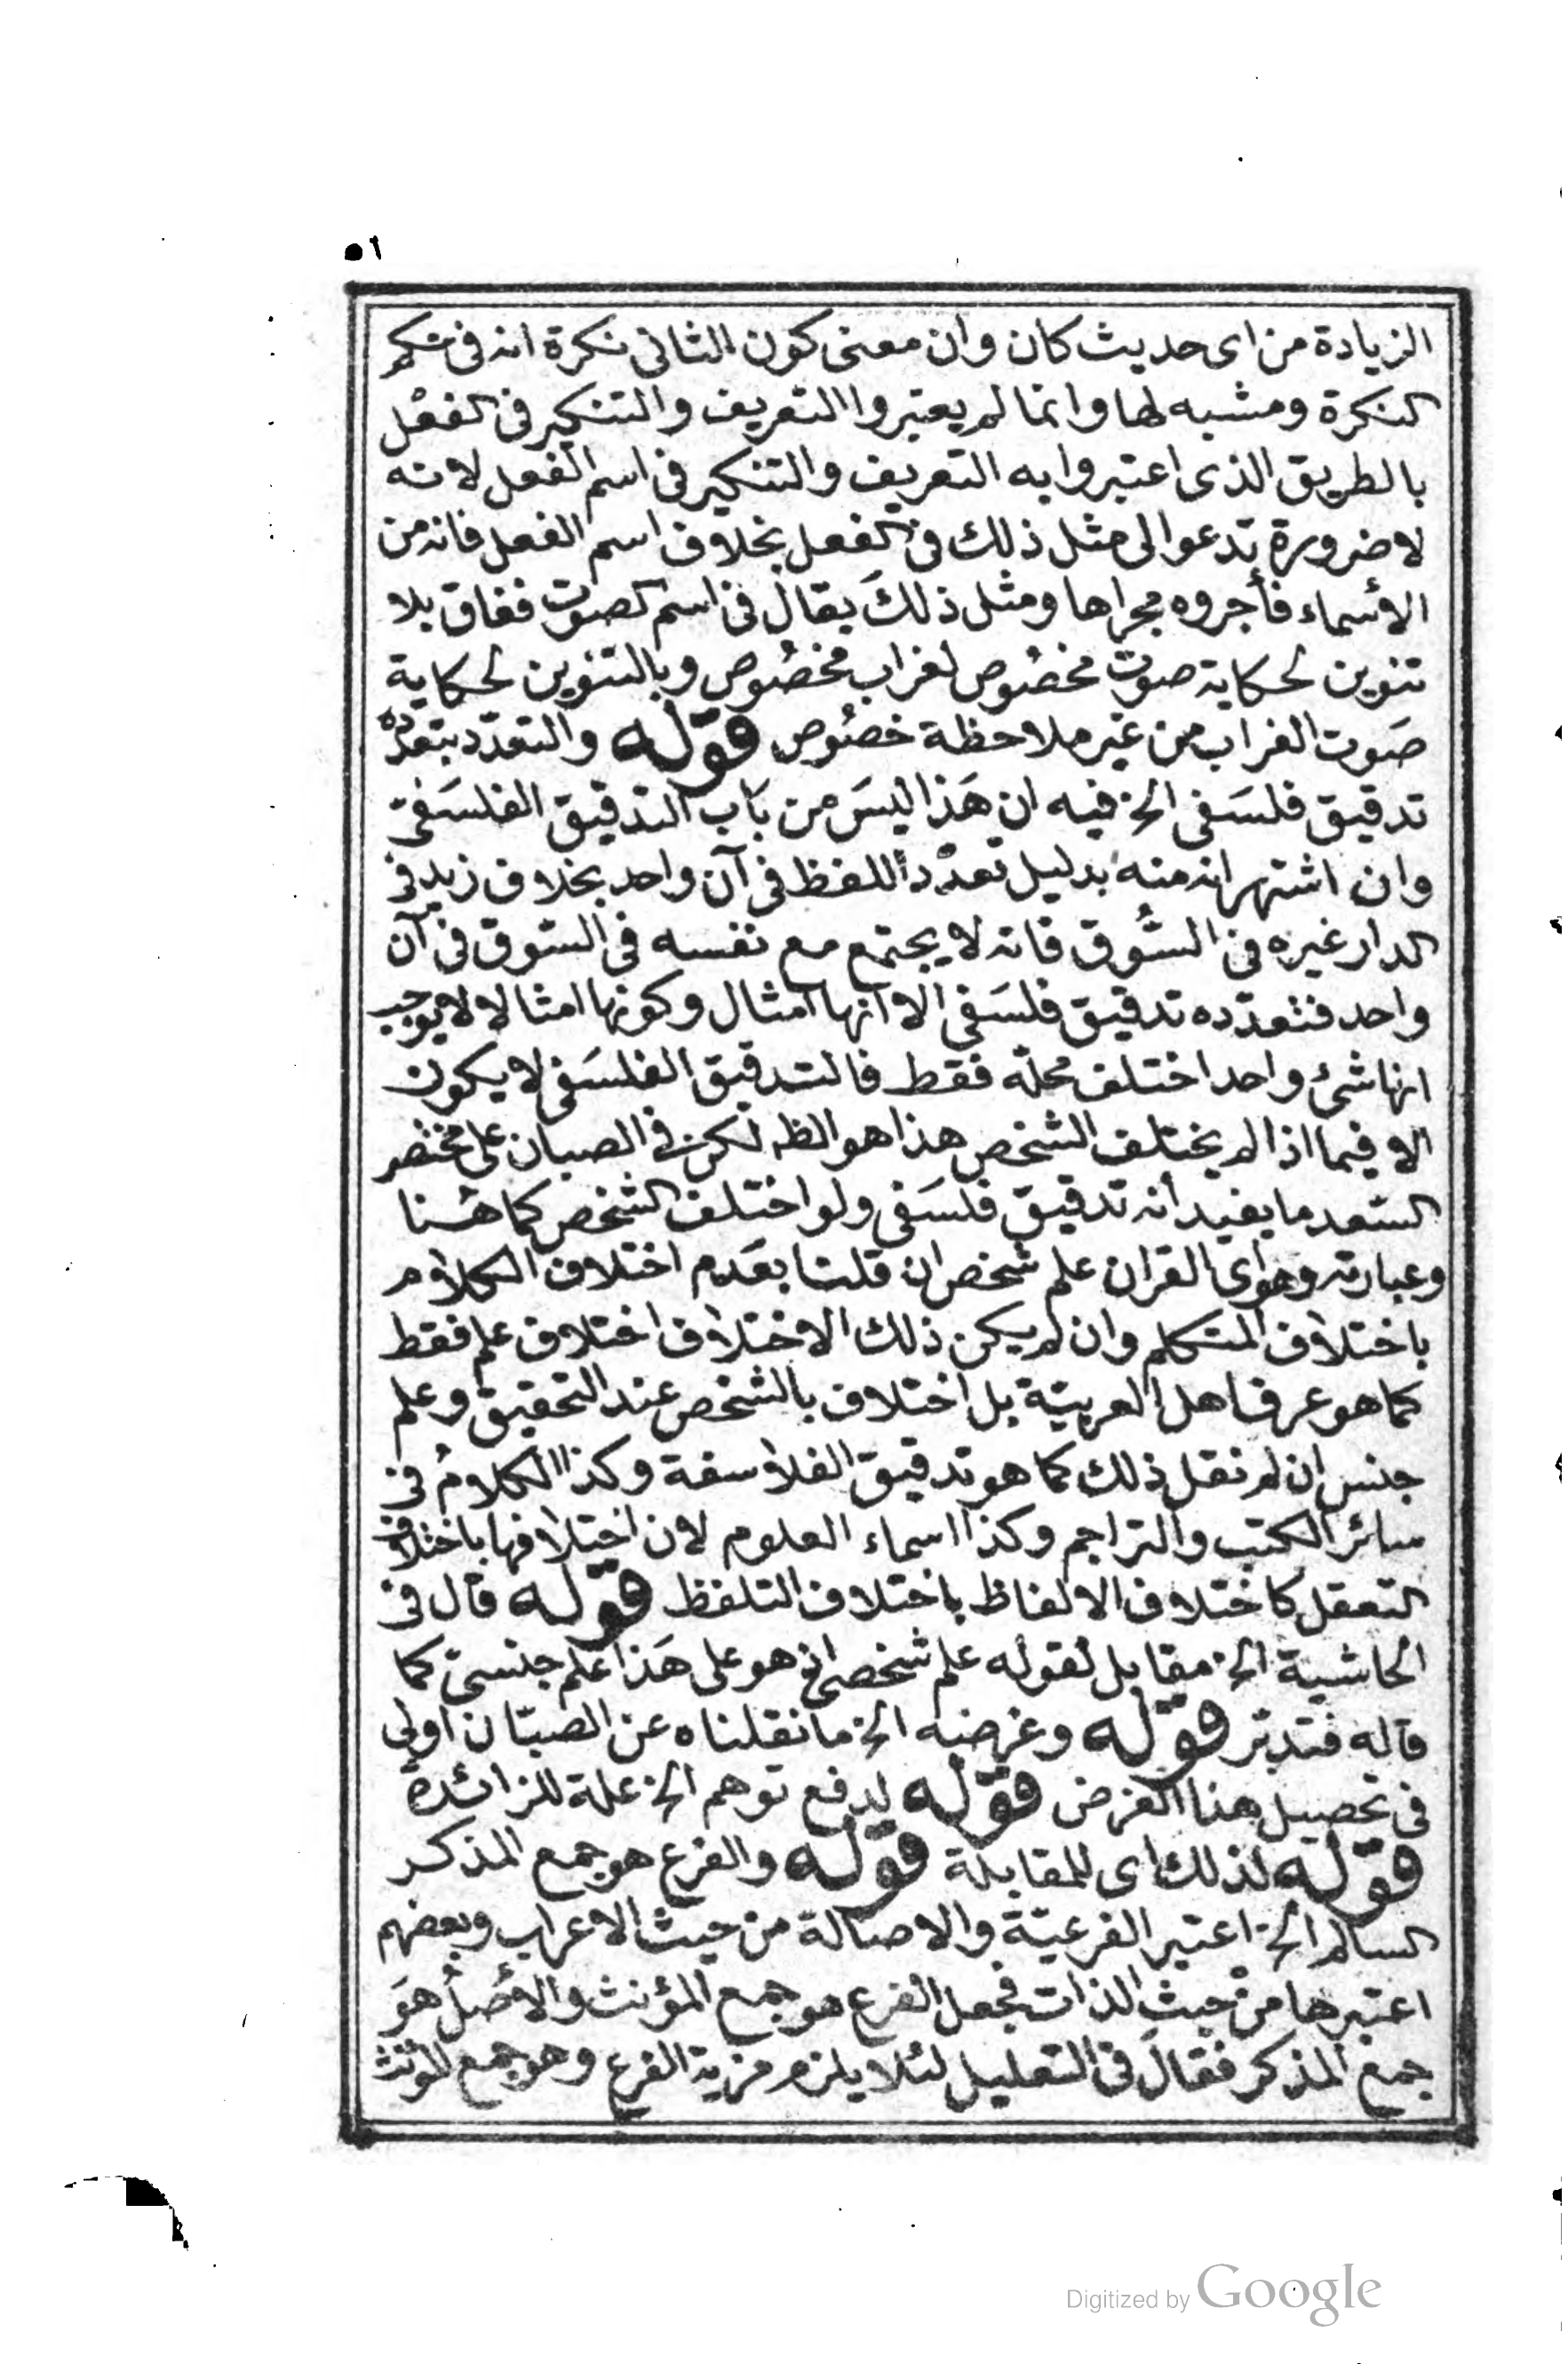 ٥١
الزيادة من اى حديث كان وان معنى كون الثانى نكرة انه فى حكم
النكرة ومشبه لها وانما لم يعتبروا التعريف والتنكير فى الفعل
بالطريق الذى اعتبروا به التعريف والتنكير فى اسم الفعل لانه
لا ضرورة تدعوا الى مثل ذلك فى الفعل بخلاف اسم الفعل فانه من
الاسماء فأجروه مجراها ومثل ذلك يقال فى اسم الصوت فغاق بلا
تنوين لحكاية صوت مخصوص لغراب مخصوص وبالتنوين لحكاية
صوت الغراب من غير ملاحظة خصوص قوله والتعدد بتعدده
تدقيق فلسفى الخ فيه ان هذا ليس من باب التدقيق الفلسفى
وان اشتهر انه منه بدليل تعدد اللفظ فى آن واحد بخلاف زيد فى
الدار غيره فى السوق فانه لا يجتمع مع نفسه فى السوق فى آن
واحد فتعدده تدقيق فلسفى الا انها امثال وكونها امثالا لا يوجب
انها شئ واحد اختلف محله فقط فالتدقيق الفلسفى لا يكون
الا فيما اذا لم يختلف الشخص هذا هو الظه لكن فى الصبان على مختصر
السعد ما يفيد انه تدقيق فلسفى ولو اختلف الشخص كما هنا
وعبارته وهو اى القران علم شخص ان قلنا بعدم اختلاف الكلام
باختلاف المتكلم وان لم يكن ذلك الاختلاف اختلاف علم فقط
كما هو عرف اهل العربية بل اختلاف بالشخص عند التحقيق وعلم
جنس ان لم نقل ذلك كما هو تدقيق الفلاسفة وكذا الكلام فى
سائر الكتب والتراجم وكذا اسماء العلوم لان اختلافها باختلاف
التعقل كاختلاف الالفاظ باختلاف التلفظ قوله قال فى
الحاشية الخ مقابل لقوله علم شخص اذ هو على هذا علم جنسى كما
قاله فتدبر قوله وغرضه الخ ما نقلناه عن الصبان اولى
فى تحصيل هذا الغرض قوله لدفع توهم الخ علة للزائدة
قوله لذلك اى للمقابلة قوله والفرع هو جمع المذكر
السالم الخ اعتبر الفرعية والاصالة من حيث الاعراب وبعضهم
اعتبرها من حيث الذات فجعل الفرع هو جمع المؤنث والاصل هو
جمع المذكر فقال فى التعليل لئلا يلزم مزية الفرع وهو جمع المؤنث
Digitized by Google